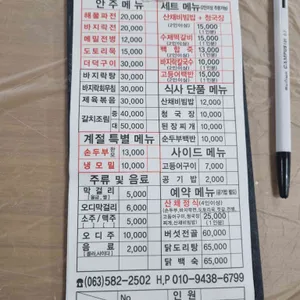 안 주 메 뉴
해물파전 20,000
바지락전 20,000
메밀전병 12,000
도토리묵 15,000
더덕구이 30,000
바지락탕 30,000
바지락회무침 30,000
제육볶음 30,000
갈치조림 중 40,000
대 50,000
계절 특별 메뉴
손두부 13,000
냉모밀 10,000
주류 및 음료
막걸리 5,000
오디막걸리 6,000
소주 / 맥주 5,000
오디주 10,000
음료 2,000
세트 메뉴
산채비빔밥 + 청국장
(2인이상) 15,000
(1인분)
수제떡갈비 15,000
백합죽 13,000
바지락칼국수
고등어백반 15,000
식사 단품 메뉴
산채비빔밥 12,000
청국장 10,000
된장찌개 10,000
순두부백반 10,000
사이드 메뉴
고등어구이 7,000
공기밥 2,000
예약 메뉴
산채정식 (4인이상)
25,000
(1인분)
버섯전골 60,000
닭도리탕 65,000
닭백숙 65,000
☎(063)582-2502 H,P 010-9438-6799
No 인원